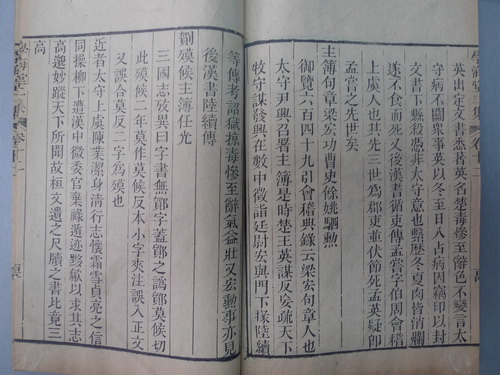 英出定文書悉著英名楚毒慘至辭色不變言太
守病不關衆事英以冬至日入占病因竊印以封
文書下縣殺憑非太守意也繫歷冬夏肉皆消爛
遂不食而死又後漢書循吏傳孟嘗字伯周會稽
上虞人也其先三世爲郡吏並伏節死孟英疑卽
孟嘗之先世矣
主簿句章梁宏功曹史餘姚駟勳
御覽六百四十九引會稽典錄云梁宏句章人也
太守尹興召署主簿是時楚王英謀反妄疏天下
牧守謀發興在數中徵詣廷尉宏與門下掾陸續
等傳考詔獄掠毒慘至辭氣益壯又宏勳事亦見
後漢書陸續傳
鄮莫候主簿任光
三國志攷異曰字書無
此
又誤合莫反二字爲
近者太守上虞陳業潔身清行志懷霜雪貞亮之信
同操柳下遭漢中微委官棄祿遁迹黟歙以求其志
高邈妙蹤天下所聞故桓文遺之尺牘之書比竟三
高
學海堂三集
卷十二